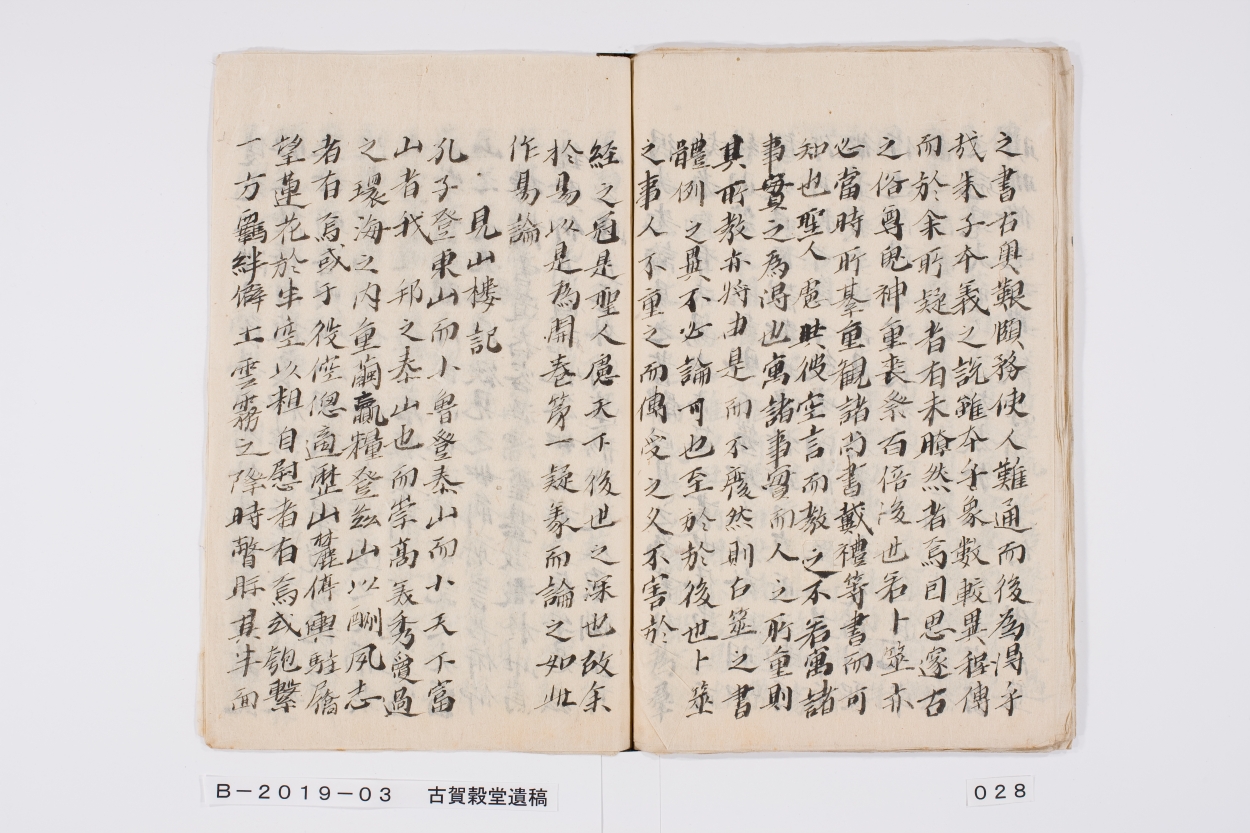 之書右奥艱頤務使人難通而後為得乎
哉朱子本義之説雖本乎象數較異程傳
而於余所疑者有未瞭然者焉因思邃古
之俗尊鬼神重喪祭百倍後世若卜筮亦
必當時所㝡重観諸尚書戴禮等書而可
知也聖人慮其從空言而教之不若寓諸
事實之為得也寓諸事實而人之所重則
其所教亦将由是而不廢然則白筮之書
體例之異不必論可也至於於後世卜筮
之事人不重之而傳受之久不害於
經之冠是聖人慮天下後世之深也故余
於易以是為開巻第一疑義而論之如此
作易論
見山樓記
孔子登東山而小魯登泰山而小天下富
山者我 邦之泰山也而崇萬美秀愛過
之環海之内重繭贏糧登茲山以酬夙志
者有焉或于役倥偬適歴山麓停輿駐屩
望蓮花於半空以粗自慰者有焉或匏繫
一方羈絆僻土雲霧之降時瞥眎其半面